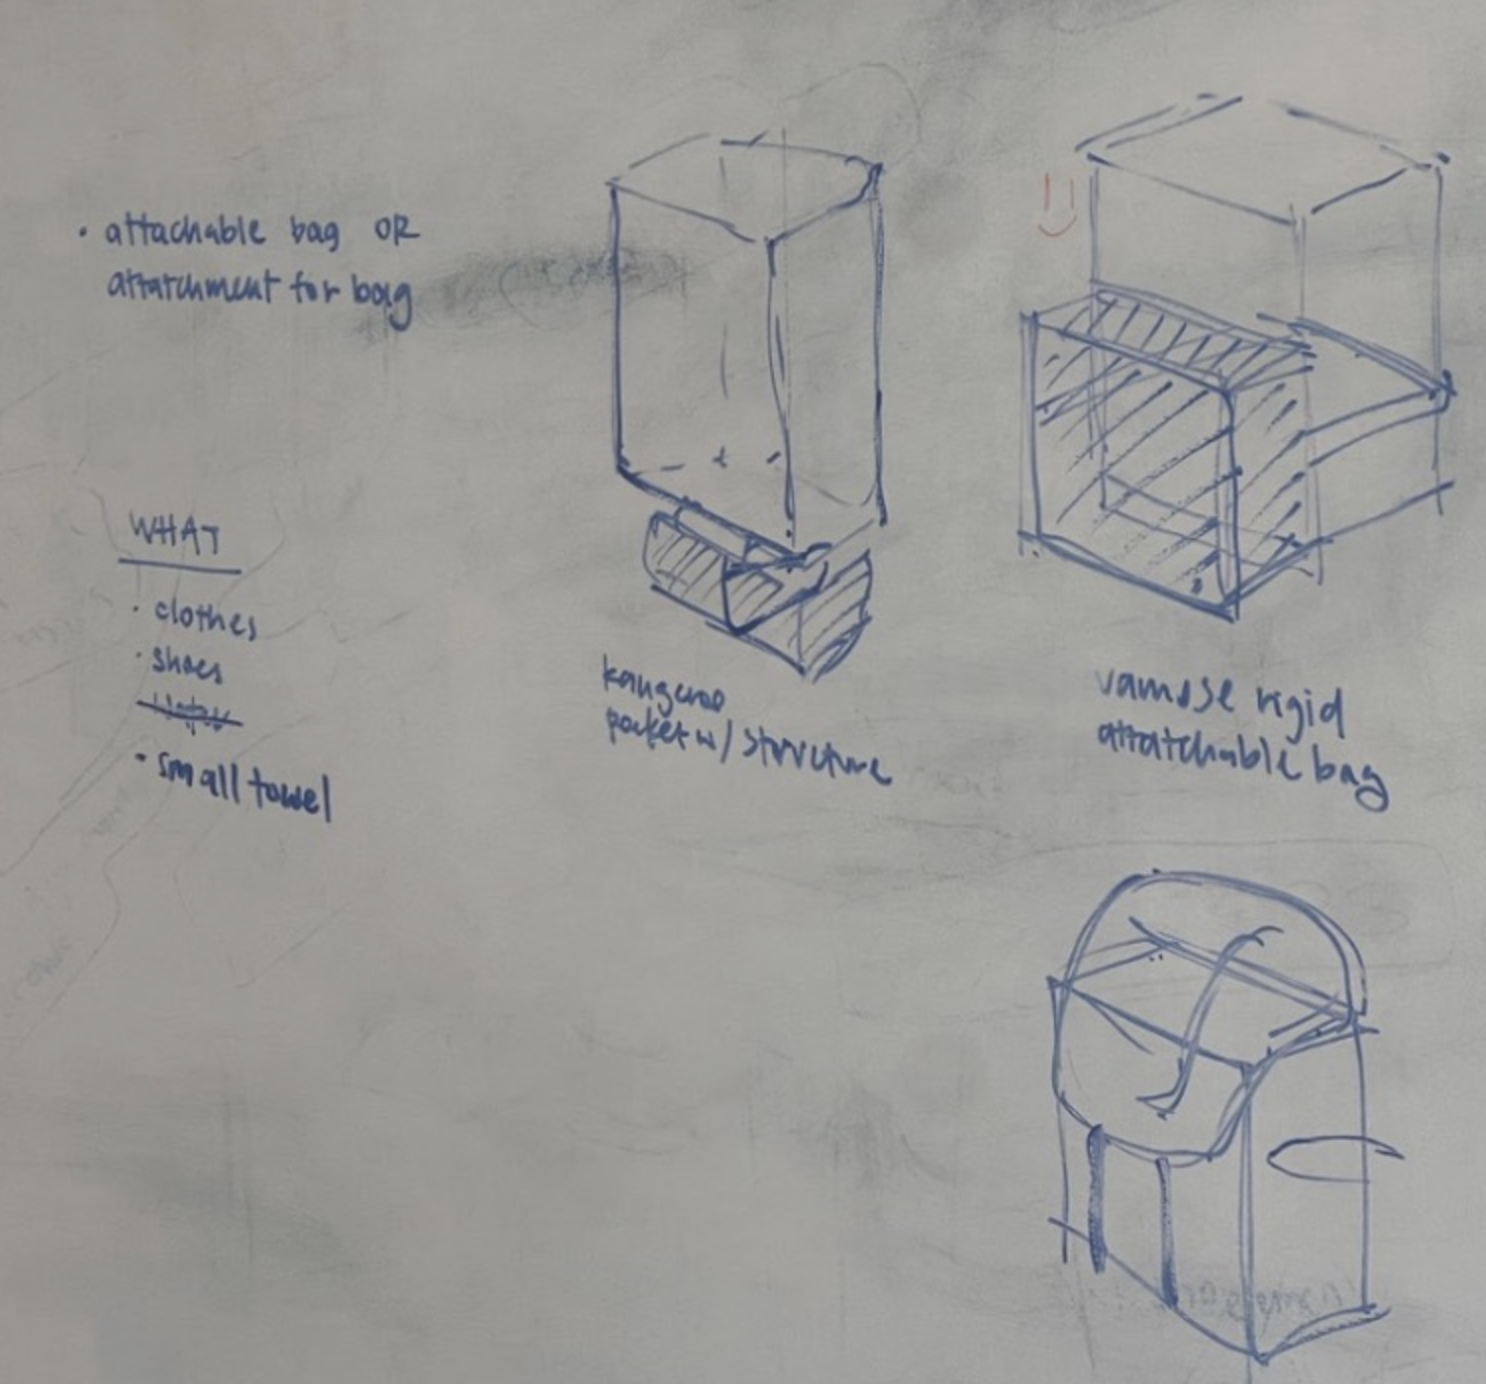 · attachable bag OR
attatchment for bag
WHAT
· clothes
· shoes
· small towel
kangeroo
pocket w/ structure
rigid
attatchable bag